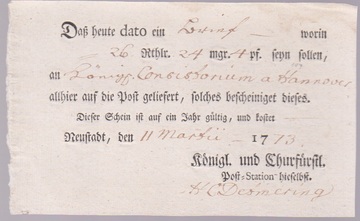 Daß heute dato ein Brief — worin
26 Rthlr. 24 mgr. 4 pf. seyn sollen,
an Königl. Consistorium a Hannover
allhier auf die Post geliefert, solches bescheiniget dieses.
Dieser Schein ist auf ein Jahr gültig, und kostet —
Neustadt, den 11 Martii — 1773.
Königl. und Churfürstl.
Post-Station hieselbst.